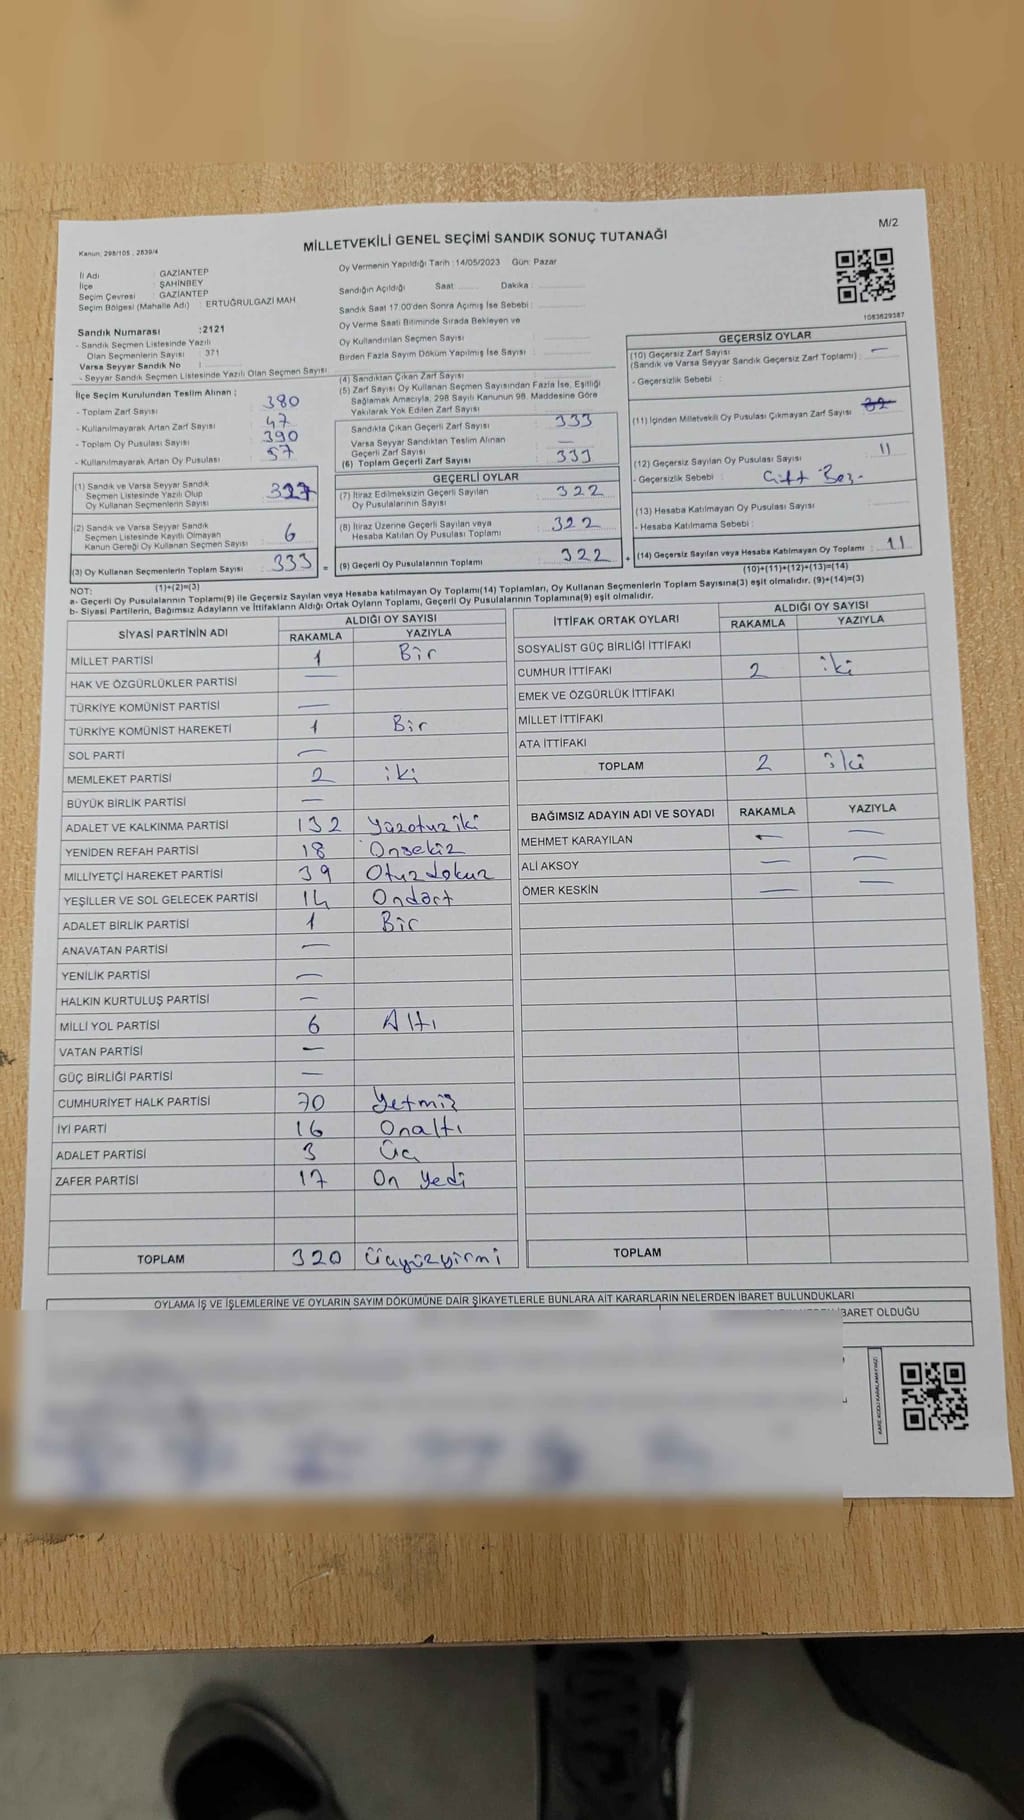 M/2
Kanun: 298/105 , 2839/4
MİLLETVEKİLİ GENEL SEÇİMİ SANDIK SONUÇ TUTANAĞI
İl Adı : GAZİANTEP
İlçe : ŞAHİNBEY
Seçim Çevresi : GAZİANTEP
Seçim Bölgesi (Mahalle Adı) : ERTUĞRULGAZİ MAH
Sandık Numarası :2121
- Sandık Seçmen Listesinde Yazılı
Olan Seçmenlerin Sayısı : 371
Varsa Seyyar Sandık No :
- Seyyar Sandık Seçmen Listesinde Yazılı Olan Seçmen Sayısı :
Oy Vermenin Yapıldığı Tarih :14/05/2023 Gün: Pazar
Sandığın Açıldığı Saat ....... Dakika :
Sandık Saat 17.00'den Sonra Açımış İse Sebebi :
Oy Verme Saati Bitiminde Sırada Bekleyen ve
Oy Kullandırılan Seçmen Sayısı :
Birden Fazla Sayım Döküm Yapılmış İse Sayısı :
1083829387
İlçe Seçim Kurulundan Teslim Alınan ;
- Toplam Zarf Sayısı : 380
- Kullanılmayarak Artan Zarf Sayısı : 47
- Toplam Oy Pusulası Sayısı : 390
- Kullanılmayarak Artan Oy Pusulası : 57
(1) Sandık ve Varsa Seyyar Sandık
Seçmen Listesinde Yazılı Olup
Oy Kullanan Seçmenlerin Sayısı : 327
(2) Sandık ve Varsa Seyyar Sandık
Seçmen Listesinde Kayıtlı Olmayan
Kanun Gereği Oy Kullanan Seçmen Sayısı : 6
(3) Oy Kullanan Seçmenlerin Toplam Sayısı : 333 =
(1)+(2)=(3)
(4) Sandıktan Çıkan Zarf Sayısı :
(5) Zarf Sayısı Oy Kullanan Seçmen Sayısından Fazla İse, Eşitliği
Sağlamak Amacıyla, 298 Sayılı Kanunun 98. Maddesine Göre
Yakılarak Yok Edilen Zarf Sayısı :
Sandıkta Çıkan Geçerli Zarf Sayısı : 333
Varsa Seyyar Sandıktan Teslim Alınan
Geçerli Zarf Sayısı : —
(6) Toplam Geçerli Zarf Sayısı : 333
GEÇERLİ OYLAR
(7) İtiraz Edilmeksizin Geçerli Sayılan
Oy Pusulalarının Sayısı : 322
(8) İtiraz Üzerine Geçerli Sayılan veya
Hesaba Katılan Oy Pusulası Toplamı : 322
(9) Geçerli Oy Pusulalarının Toplamı : 322 +
GEÇERSİZ OYLAR
(10) Geçersiz Zarf Sayısı
(Sandık ve Varsa Seyyar Sandık Geçersiz Zarf Toplamı) : —
- Geçersizlik Sebebi :
(11) İçinden Milletvekil Oy Pusulası Çıkmayan Zarf Sayısı :
(12) Geçersiz Sayılan Oy Pusulası Sayısı : 11
- Geçersizlik Sebebi : Çift Bas-
(13) Hesaba Katılmayan Oy Pusulası Sayısı :
- Hesaba Katılmama Sebebi :
(14) Geçersiz Sayılan veya Hesaba Katılmayan Oy Toplamı : 11
(10)+(11)+(12)+(13)=(14)
NOT:
a- Geçerli Oy Pusulalarının Toplamı(9) ile Geçersiz Sayılan veya Hesaba katılmayan Oy Toplamı(14) Toplamları, Oy Kullanan Seçmenlerin Toplam Sayısına(3) eşit olmalıdır. (9)+(14)=(3)
b- Siyasi Partilerin, Bağımsız Adayların ve İttifakların Aldığı Ortak Oyların Toplamı, Geçerli Oy Pusulalarının Toplamına(9) eşit olmalıdır.
SİYASİ PARTİNİN ADI ALDIĞI OY SAYISI
RAKAMLA YAZIYLA
MİLLET PARTİSİ 1 Bir
HAK VE ÖZGÜRLÜKLER PARTİSİ —
TÜRKİYE KOMÜNİST PARTİSİ —
TÜRKİYE KOMÜNİST HAREKETİ 1 Bir
SOL PARTİ —
MEMLEKET PARTİSİ 2 iki
BÜYÜK BİRLİK PARTİSİ —
ADALET VE KALKINMA PARTİSİ 132 Yüzotuziki
YENİDEN REFAH PARTİSİ 18 Onsekiz
MİLLİYETÇİ HAREKET PARTİSİ 39 Otuzdokuz
YEŞİLLER VE SOL GELECEK PARTİSİ 14 Ondört
ADALET BİRLİK PARTİSİ 1 Bir
ANAVATAN PARTİSİ —
YENİLİK PARTİSİ —
HALKIN KURTULUŞ PARTİSİ —
MİLLİ YOL PARTİSİ 6 Altı
VATAN PARTİSİ —
GÜÇ BİRLİĞİ PARTİSİ —
CUMHURİYET HALK PARTİSİ 70 Yetmiş
İYİ PARTİ 16 Onaltı
ADALET PARTİSİ 3 Üç
ZAFER PARTİSİ 17 On yedi
TOPLAM 320 Üçyüzyirmi
İTTİFAK ORTAK OYLARI ALDIĞI OY SAYISI
RAKAMLA YAZIYLA
SOSYALİST GÜÇ BİRLİĞİ İTTİFAKI
CUMHUR İTTİFAKI 2 iki
EMEK VE ÖZGÜRLÜK İTTİFAKI
MİLLET İTTİFAKI
ATA İTTİFAKI
TOPLAM 2 iki
BAĞIMSIZ ADAYIN ADI VE SOYADI RAKAMLA YAZIYLA
MEHMET KARAYILAN — —
ALİ AKSOY — —
ÖMER KESKİN — —
TOPLAM
OYLAMA İŞ VE İŞLEMLERİNE VE OYLARIN SAYIM DÖKÜMÜNE DAİR ŞİKAYETLERLE BUNLARA AİT KARARLARIN NELERDEN İBARET BULUNDUKLARI
İBARET OLDUĞU
KARE KODU KARALAMAYINIZ!